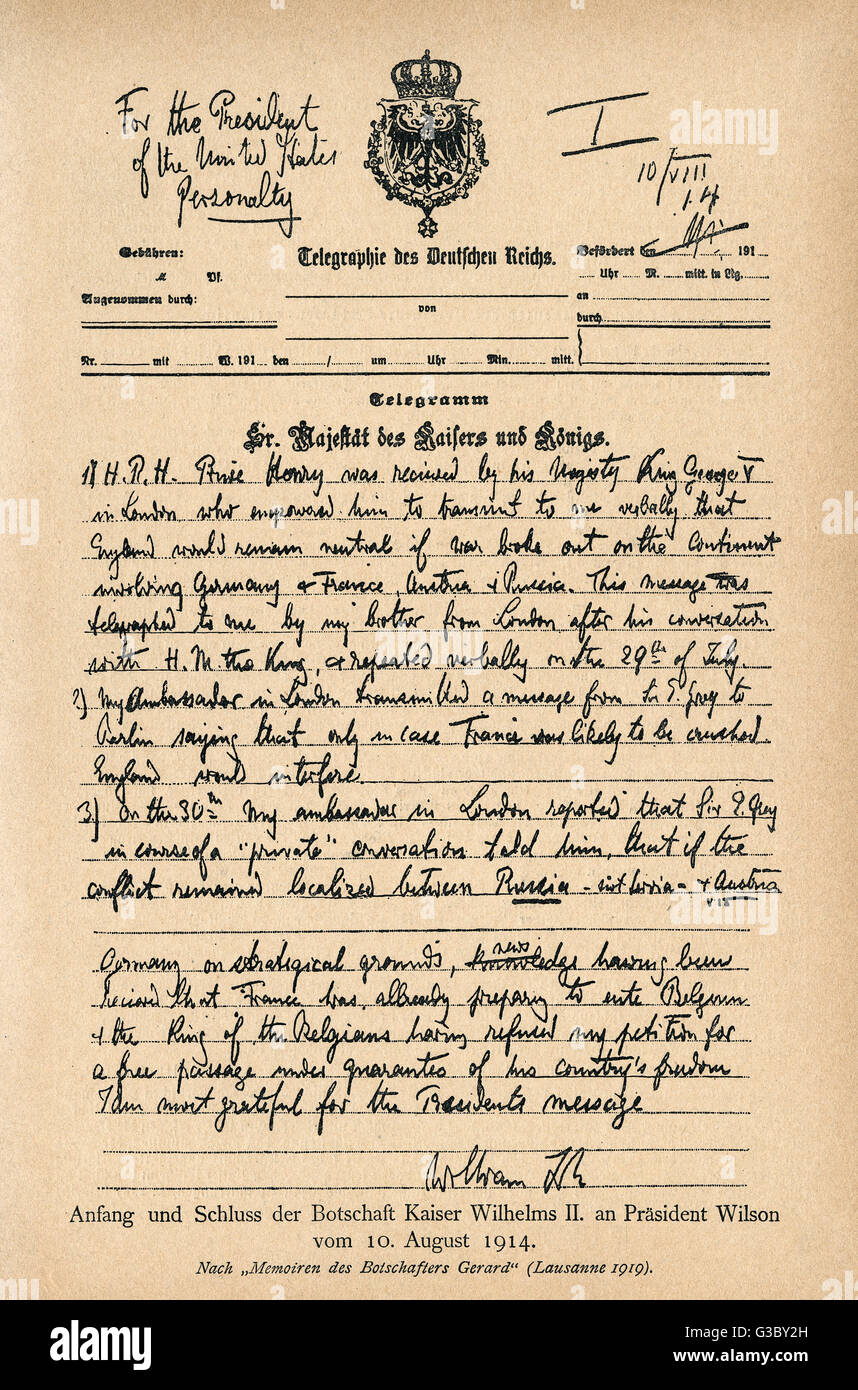 For the President
of the United States
Personalty
I
10/VIII
14
Gebühren:
M Pf.
Angenommen durch:
Telegraphie des Deutschen Reichs.
von
Befördert den 191
Uhr M. mitt. in Ltg.
an
durch
Nr. mit W. 191 den / um Uhr Min. mitt.
Telegramm
Sr. Majestät des Kaisers und Königs.
1) H.R.H. Prince Henry was recieved by his Majesty King George V
in London who empowered him to transmit to me verbally that
England would remain neutral if war broke out on the Continent
involving Germany & France, Austria & Russia. This message was
telegraphed to me by my brother from London after his conversation
with H.M. the King, & repeated verbally on the 29th of July.
2) My Ambassador in London transmitted a message from Sir E. Grey to
Berlin saying that only in case France was likely to be crushed
England would interfere.
3) On the 30th my ambassador in London reported that Sir E. Grey
in course of a "private" conversation told him, that if the
conflict remained localized between Russia - not Servia - & Austria
Germany on strategical grounds, news having been
recieved that France was allready preparing to enter Belgium
& the King of the Belgians having refused my petition for
a free passage under guarantee of his country's freedom
I am most grateful for the Presidents message
William
Anfang und Schluss der Botschaft Kaiser Wilhelms II. an Präsident Wilson
vom 10. August 1914.
Nach „Memoiren des Botschafters Gerard“ (Lausanne 1919).
alamy
Image ID: G3BY2H
www.alamy.com